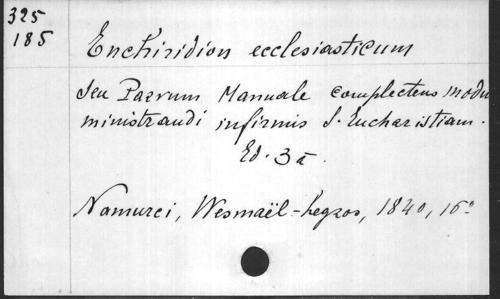 325
185
Enchiridion ecclesiasticum
seu Parvum Manuale complectens modu
ministrandi infirmis S. Eucharistiam.
Ed. 3a.
Namurci, Wesmaël-Legros, 1840, 16º